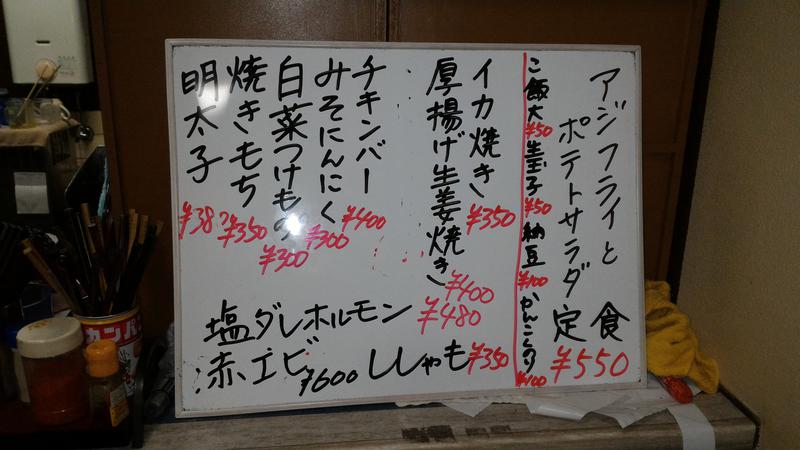 アジフライと
ポテトサラダ定食
¥550
ご飯大¥50 生玉子¥50 納豆¥100 かんこくのり¥100
イカ焼き¥350
厚揚げ生姜焼き¥400
チキンバー¥400
みそにんにく¥300
白菜つけもの¥300
焼きもち¥350
明太子¥38
塩ダレホルモン¥480
赤エビ¥600 ししゃも¥350
カンパン